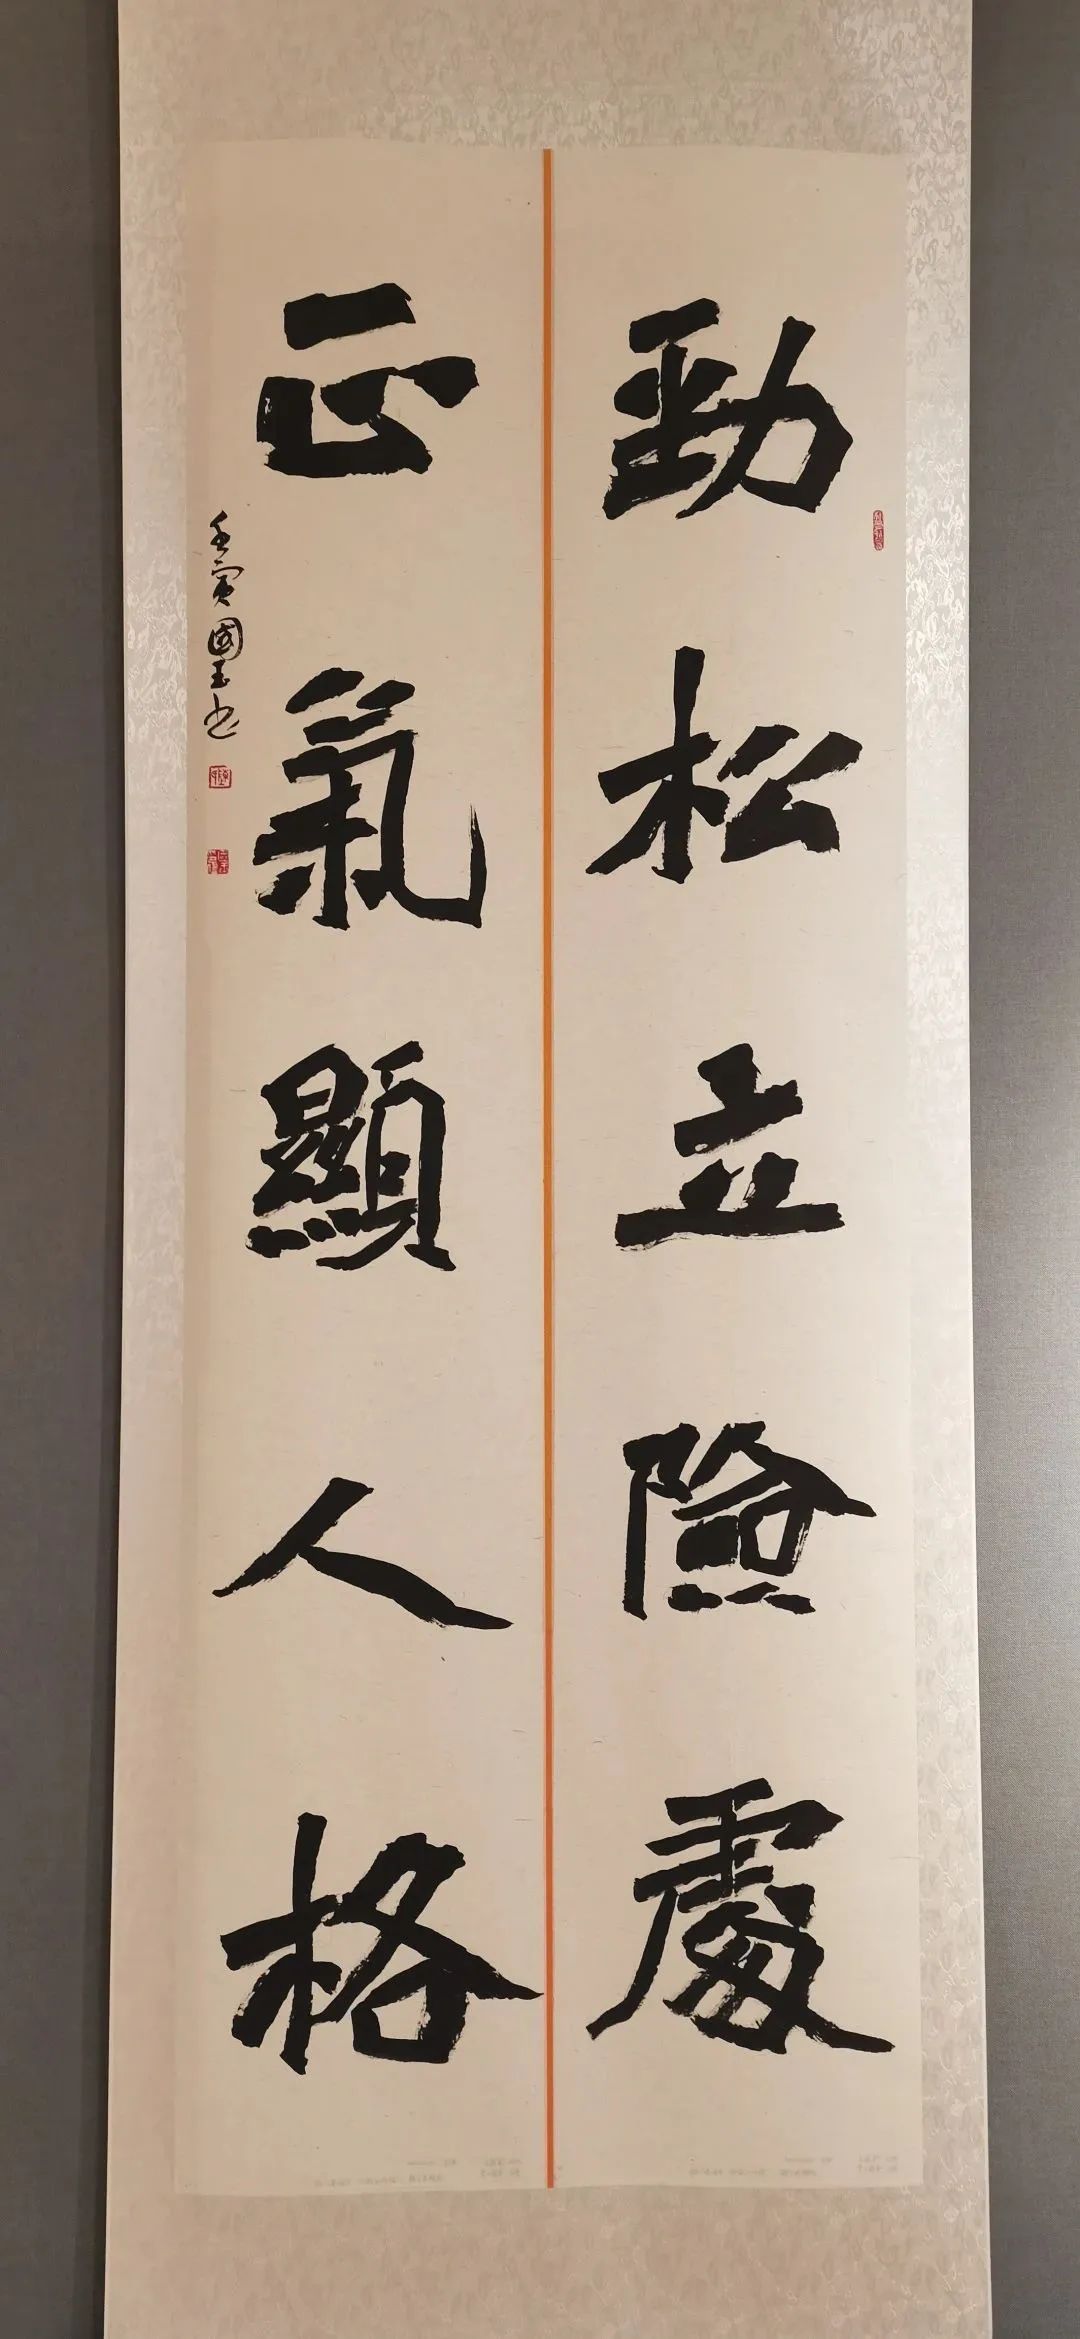 勁松立險處
正氣顯人格
壬寅國玉书